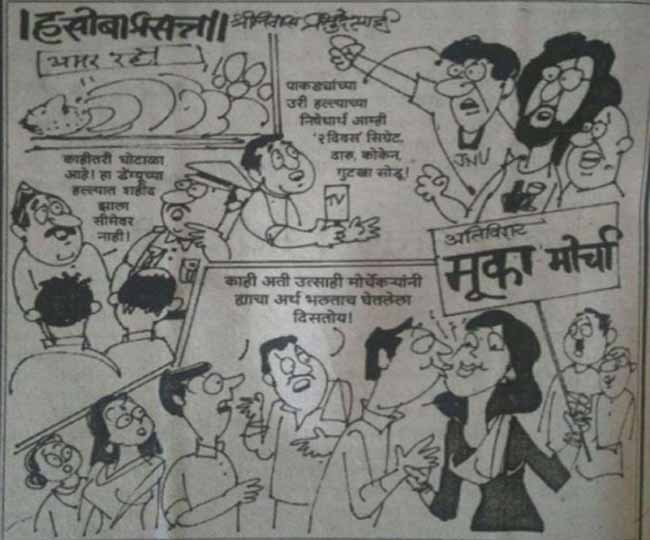 ।हसोबाप्रसन्न।।
अमर रहे!
पाकड्यांच्या
उरी हल्ल्याच्या
निषेधार्थ आम्ही
'२ दिवस' सिग्रेट,
दारू, कोकेन,
गुटखा सोडू!
JNU
TV
काहीतरी घोटाळा
आहे! हा डेंग्यूच्या
हल्ल्यात शहीद
झाला
सीमेवर
नाही!
अतिविराट
मूका मोर्चा
काही अती उत्साही मोर्चेकऱ्यांनी
ह्याचा अर्थ भलताच घेतलेला
दिसतोय!